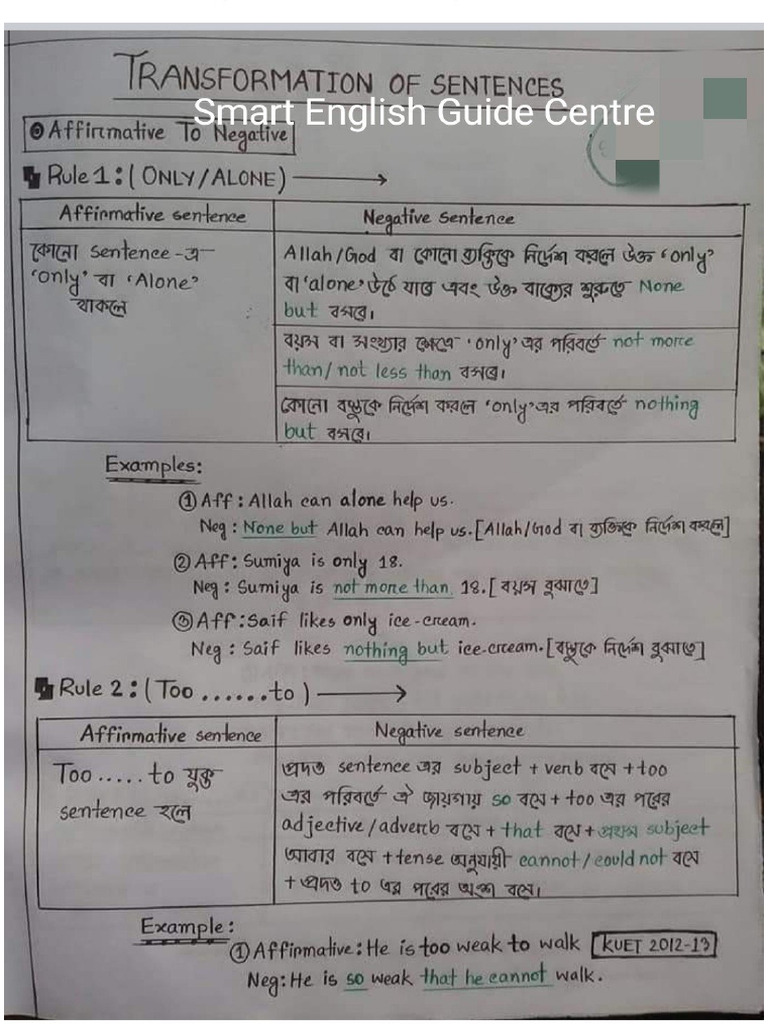 TRANSFORMATION OF SENTENCES
Smart English Guide Centre
Affirmative To Negative
Rule 1: (ONLY/ALONE)
Affirmative sentence
Negative Sentence
কোনো sentence-এ
'only' বা 'Alone'
থাকলে
Allah/God বা কোনো ব্যক্তিকে নির্দেশ করলে উক্ত 'only'
বা 'alone' উঠে যাবে এবং উক্ত বাক্যের শুরুতে None
but বসবে।
বয়স বা সংখ্যার ক্ষেত্রে 'only' এর পরিবর্তে not more
than/ not less than বসবে।
কোনো বস্তুকে নির্দেশ করলে 'only' এর পরিবর্তে nothing
but বসবে।
Examples:
① Aff: Allah can alone help us.
Neg: None but Allah can help us. [Allah/God বা ব্যক্তিকে নির্দেশ করলে]
② Aff: Sumiya is only 18.
Neg: Sumiya is not more than 18. [বয়স বুঝাতে]
③ Aff: Saif likes only ice-cream.
Neg: Saif likes nothing but ice-cream. [বস্তুকে নির্দেশ বুঝাতে]
Rule 2: (Too ......to)
Affirmative sentence
Negative sentence
Too.....to যুক্ত
sentence হলে
প্রদত্ত sentence এর subject + verb বসে + too
এর পরিবর্তে ঐ জায়গায় so বসে + too এর পরের
adjective/adverb বসে + that বসে + প্রথম subject
আবার বসে + tense অনুযায়ী cannot/could not বসে
+ প্রদত্ত to এর পরের অংশ বসে।
Example:
① Affirmative: He is too weak to walk [KUET 2012-13]
Neg: He is so weak that he cannot walk.